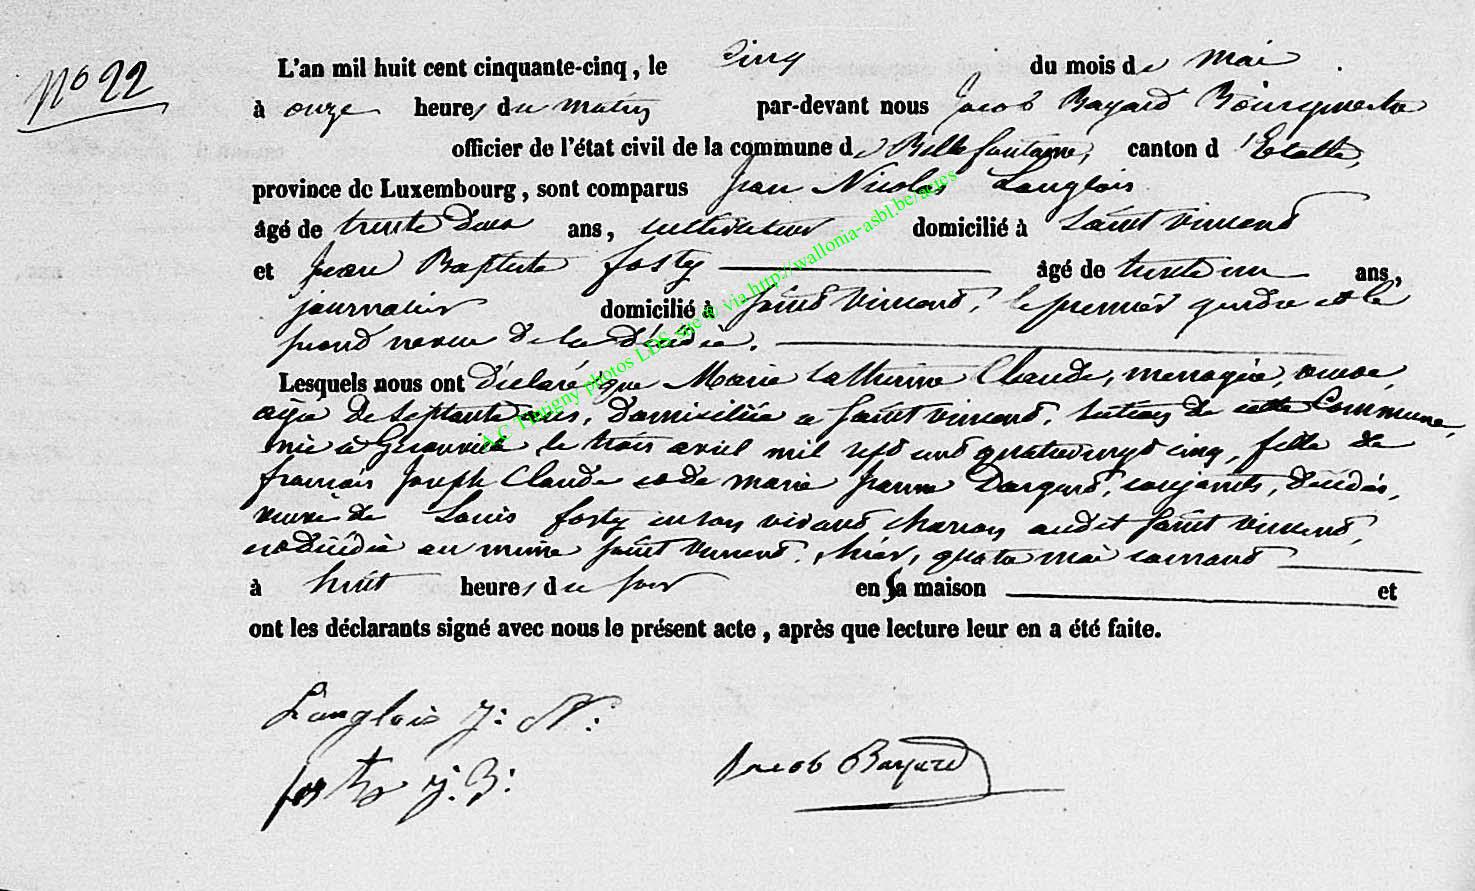 No 22
L'an mil huit cent cinquante-cinq, le cinq du mois de mai
à onze heures du matin par-devant nous Jacob Bayard Bourgmestre
officier de l'état civil de la commune de Bellefontaine, canton d'Etalle,
province de Luxembourg, sont comparus Jean Nicolas Langlois
âgé de trente deux ans, cultivateur domicilié à Saint Vincent
et Jean Baptiste fosty âgé de trente un ans,
journalier domicilié à Saint Vincent, le premier gendre et le
second neveu de la décédée.
Lesquels nous ont déclaré que Marie Catherine Claude, menagère,
agée de septante ans, domiciliée a Saint Vincent, section de cette Commune,
née à Gérouville le trois avril mil sept cent quatrevingt cinq, fille de
francois Joseph Claude et de marie Jeanne, conjoints, décédés,
veuve de Louis fosty en son vivant charron audit Saint Vincent,
est décédée au même Saint Vincent, hier, quatre mai courant
à huit heures du soir en sa maison et
ont les déclarants signé avec nous le présent acte, après que lecture leur en a été faite.
Langlois J: N:
fosty j: B:
Jacob Bayard
A.C Tintigny photos LDS mise en via http://wallonia-asbl.be/actes